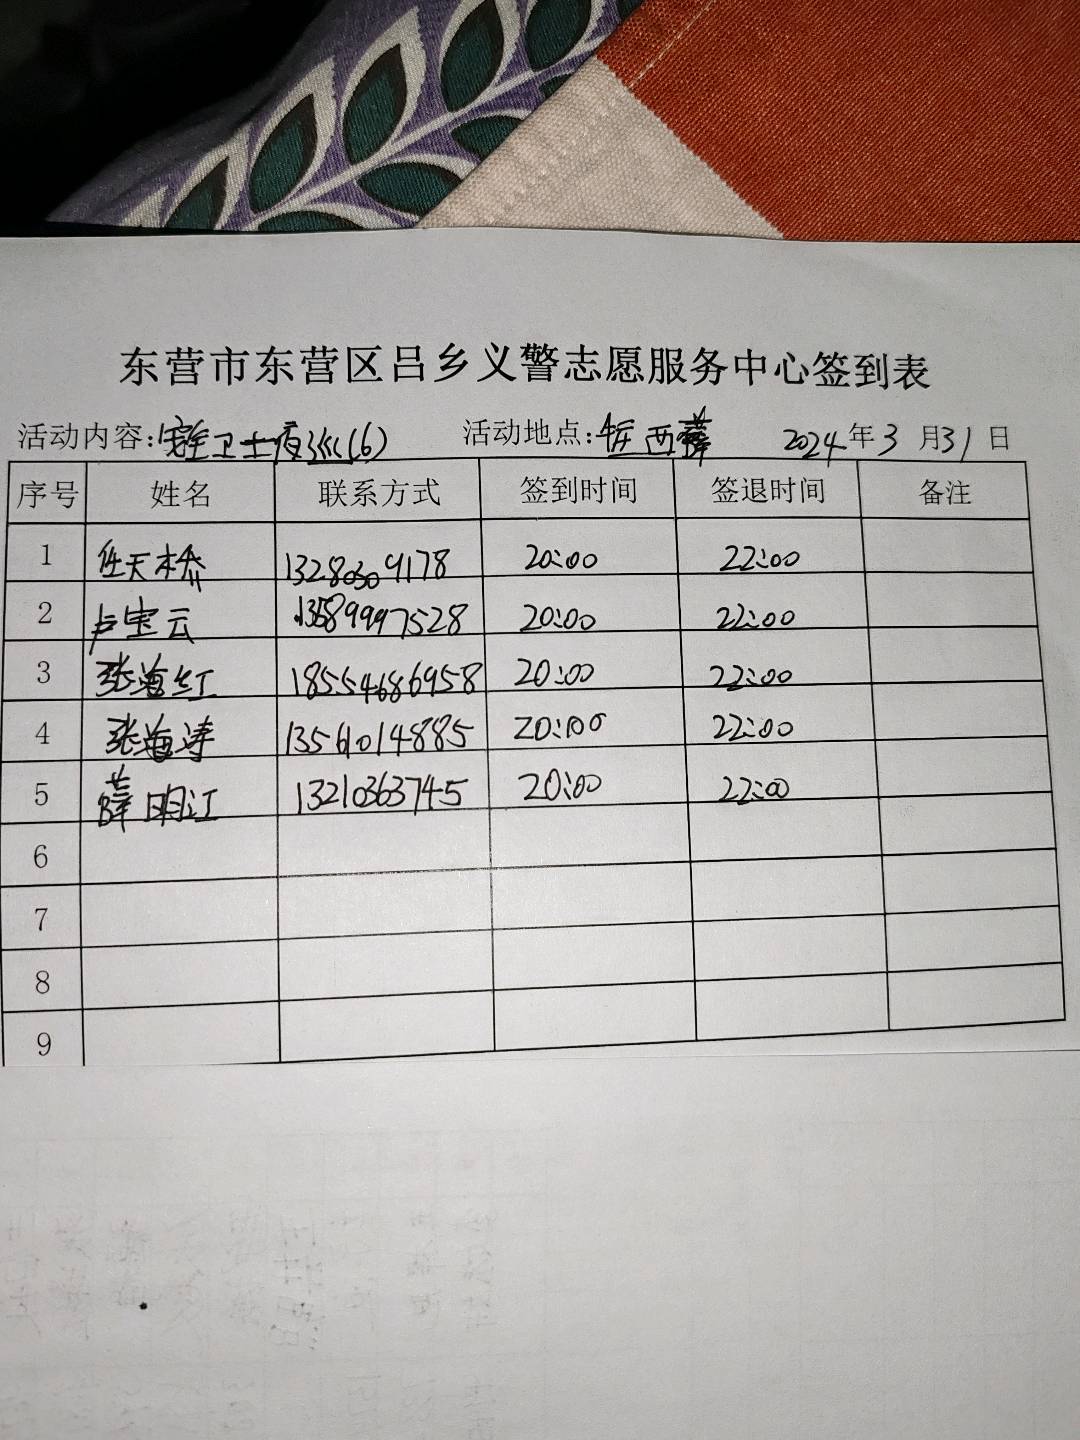 东营市东营区吕乡义警志愿服务中心签到表
活动内容: 卫士夜巡(6) 活动地点: 西薛 2024年3月31日
序号 姓名 联系方式 签到时间 签退时间 备注
1 任天 13280309178 20:00 22:00
2 卢宝云 13589997528 20:00 22:00
3 张海红 18554686958 20:00 22:00
4 张海涛 13561014885 20:00 22:00
5 薛明江 13210363745 20:00 22:00
6
7
8
9